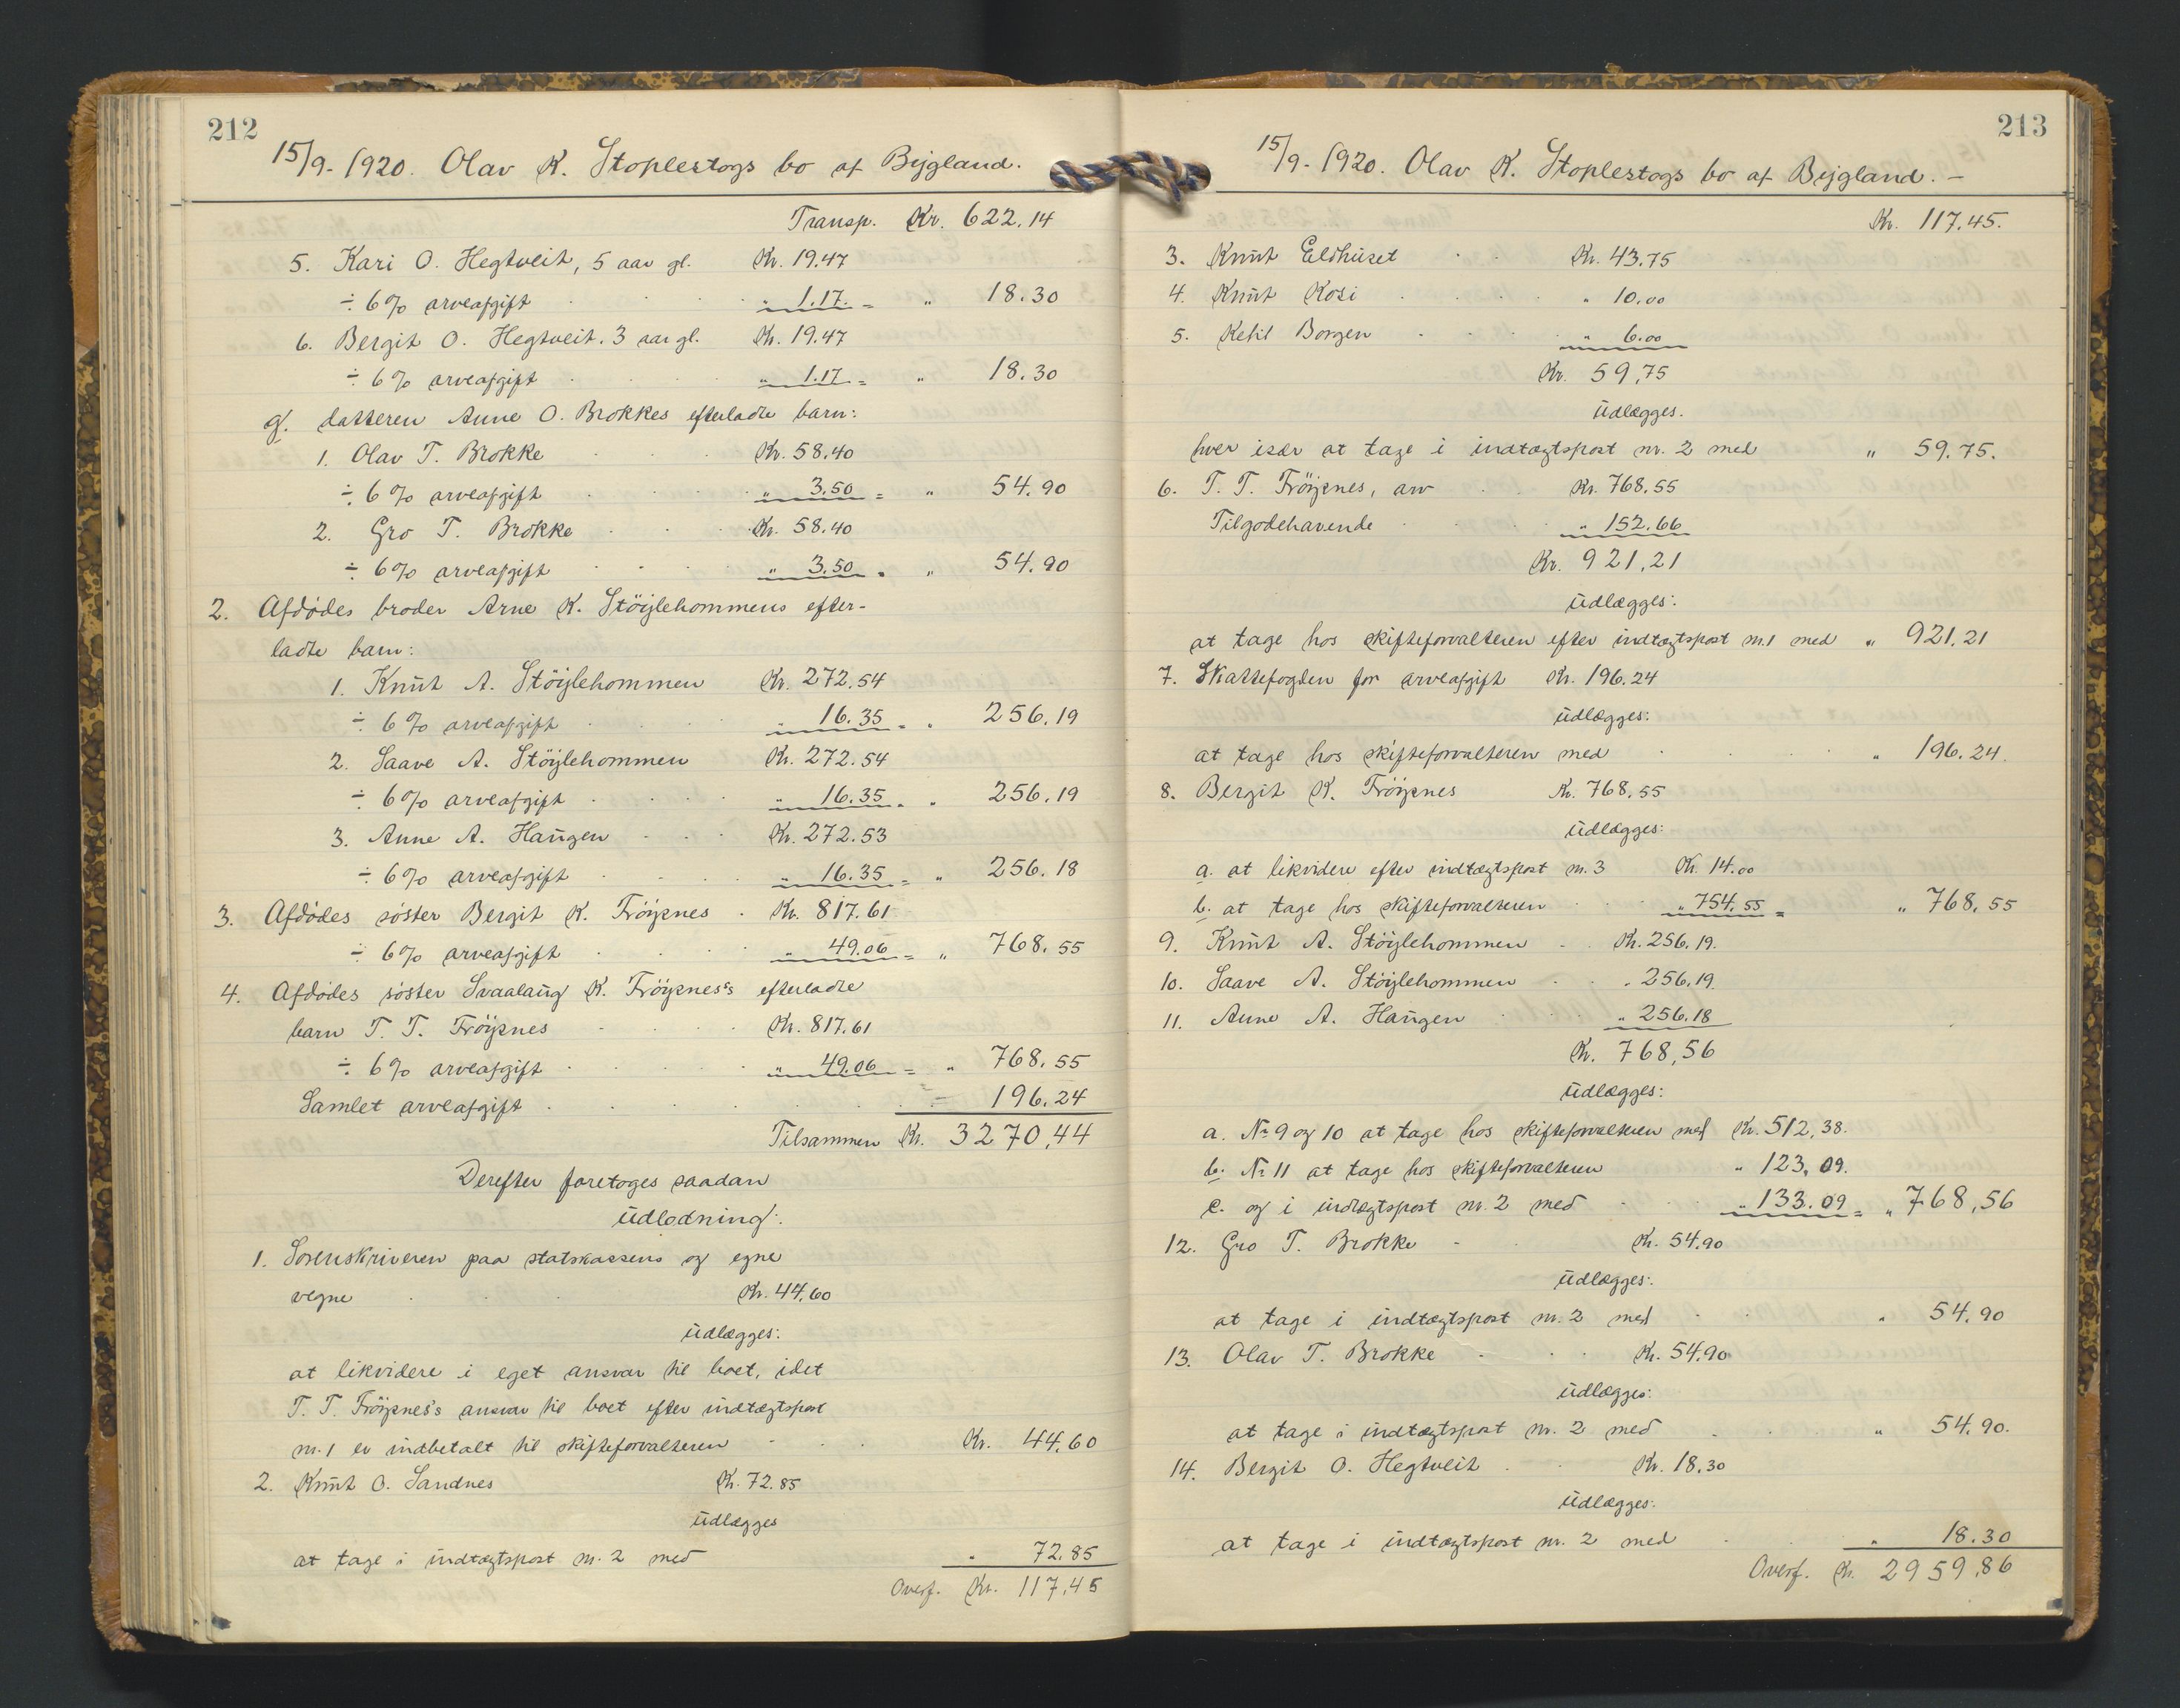 212
15/9-1920. Olav K. Stoplestogs bo af Bygland.
Transp. Kr. 622.14
5. Kari O. Hegtveit, 5 aar gl. Kr. 19.47
÷ 6% arveafgift " 1.17. = " 18.30
6. Bergit O. Hegtveit. 3 aar gl. Kr. 19.47
÷ 6% arveafgift " 1.17 = " 18.30
g. datteren Anne O. Brokkes efterladte barn:
1. Olav T. Brokke Kr. 58.40
÷ 6% arveafgift " 3.50 = " 54.90
2. Gro T. Brokke Kr. 58.40
÷ 6% arveafgift " 3.50 = " 54.90
2. Afdødes broder Arne K. Støylehommens efter-
ladte barn:
1. Knut A. Støylehommen Kr. 272.54
÷ 6% arveafgift " 16.35 = " 256.19
2. Saave A. Støylehommen Kr. 272.54
÷ 6% arveafgift " 16.35 = " 256.19
3. Anne A. Haugen Kr. 272.53
÷ 6% arveafgift " 16.35 = " 256.18
3. Afdødes søster Bergit K. Frøysnes Kr. 817.61
÷ 6% arveafgift " 49.06 = " 768.55
4. Afdødes søster Svaalaug K. Frøysnes's efterladte
barn T. T. Frøysnes Kr. 817.61
÷ 6% arveafgift " 49.06 = " 768.55
Samlet arveafgift = 196.24
Tilsammen Kr. 3270,44
Derefter foretoges saadan
udlodning:
1. Sorenskriveren paa statskassens og egne
vegne Kr. 44.60
udlægges:
at likvidere i eget ansvar til boet, idet
T. T. Frøysnes's ansvar til boet efter indtægtspost
nr. 1 er indbetalt til skifteforvalteren Kr. 44.60
2. Knut O. Sandnes Kr. 72.85
udlægges
at tage i indtægtspost nr. 2 med " 72.85
Overf. Kr. 117.45
213
15/9-1920. Olav K. Stoplestogs bo af Bygland. -
Kr. 117.45.
3. Knut Eldhuset Kr. 43.75
4. Knut Kosi " 10.00
5. Ketil Borgen " 6.00
Kr. 59,75
udlægges.
hver især at tage i indtægtspost nr. 2 med " 59.75.
6. T. T. Frøysnes, arv Kr. 768.55
Tilgodehavende " 152.66
Kr. 921,21
udlægges:
at tage hos skifteforvalteren efter indtægtspost nr. 1 med " 921.21
7. Skattefogden for arveafgift Kr. 196.24
udlægges:
at tage hos skifteforvalteren med " 196.24.
8. Bergit K. Frøysnes Kr. 768.55
udlægges:
a. at likvidere efter indtægtspost nr. 3 Kr. 14.00
b. at tage hos skifteforvalteren " 754.55 = " 768,55
9. Knut A. Støylehommen Kr. 256.19.
10. Saave A. Støylehommen " 256.19.
11. Anne A. Haugen " 256.18
Kr. 768,56
udlægges:
a. Nr 9 og 10 at tage hos skifteforvalteren med Kr. 512,38.
b. Nr 11 at tage hos skifteforvalteren " 123,09.
c. og i indtægtspost nr. 2 med " 133.09 = " 768,56
12. Gro T. Brokke Kr. 54.90
udlægges:
at tage i indtægtspost nr. 2 med " 54.90
13. Olav T. Brokke Kr. 54.90
udlægges:
at tage i indtægtspost nr. 2 med " 54.90.
14. Bergit O. Hegtveit Kr. 18.30
udlægges:
at tage i indtægtspost nr. 2 med " 18.30
Overf. Kr. 2959,86